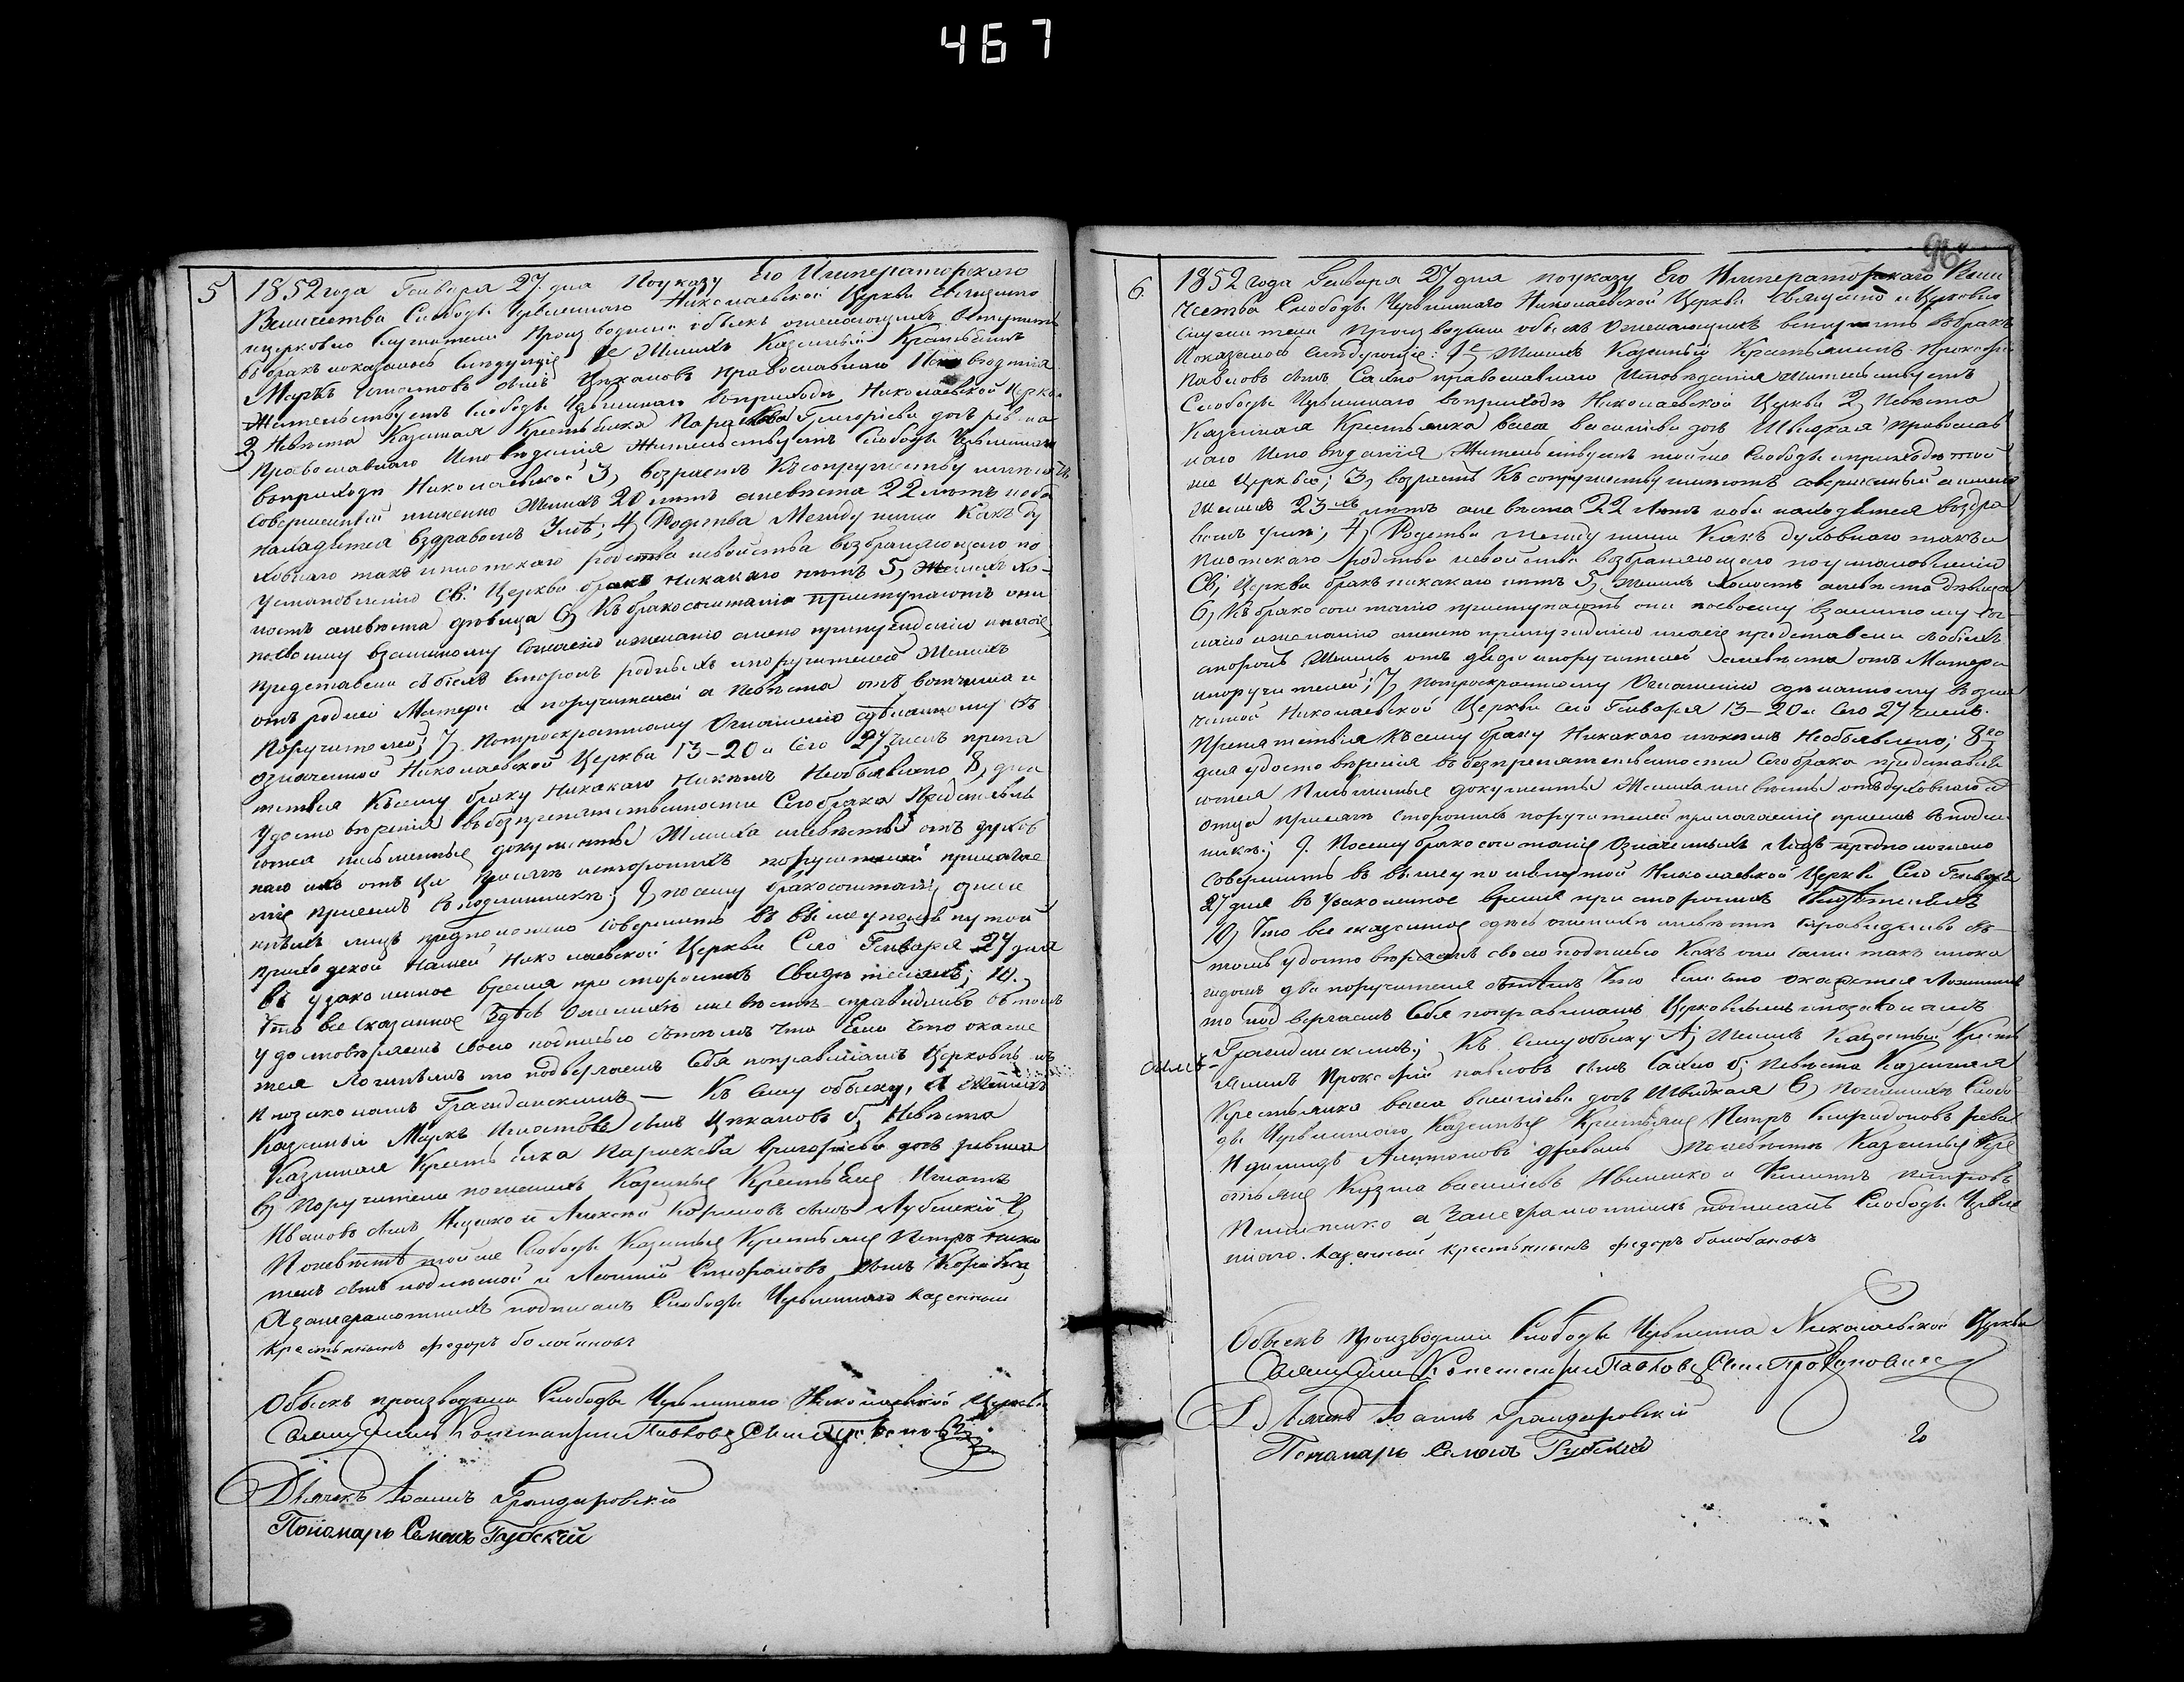 467
96
5
1852 года Генваря 27 дня По указу Его Императорскаго
Величества Слободы Червленнаго Николаевской Церкви священно
и церковно служители производили обыскъ о желающихъ вступить
въ бракъ и оказалось следующее 1е Женихъ Казенный Крестьянинъ
Маркъ Игнатовъ сынъ Цекановъ православнаго Исповѣданія
Жительствуетъ Слободы Червленнаго въ приходѣ Николаевской Церкви
2) Невѣста Казенная Крестьянка Параскева Григорієва дочь
Православнаго Исповѣданія Жительствуетъ Слободы Червленнаго
въ приходѣ Николаевской 3) возрастъ къ супружеству имѣютъ
совершенный именно Женихъ 20 лѣтъ а невѣста 22 лѣтъ и оба
находятся въ здравомъ Умѣ; 4) Родства Между ними Какъ ду
ховнаго такъ и плотскаго родства и свойства возбраняющаго по
установленію Св: Церкви бракъ никакаго нѣтъ 5) Женихъ хо-
лостъ а невѣста дѣвица 6) Къ бракосочетанію приступаютъ они
по своему взаимному согласію и желанію а не по принужденію и на сіе
представили съ обѣихъ Сторонъ родныхъ и поручителей Женихъ
отъ родной Матери и поручителей а Невѣста отъ вотчима и
Поручителей; 7) По троекратному Оглашенію сдѣланному въ
означенной Николаевской Церкви 13-20 и Сего 27 числъ препя
тствія Къ сему браку Никакаго Никѣмъ Необъявлено 8) для
Удостовѣренія въ безпрепятственности Сего брака Представля
ются письменные документы Жениха и невѣсты отъ духов
наго ихъ отца присягъ и стороннихъ поручителей прилагае
мые приемъ въ подлинникѣ; 9) по сему бракосочетаніе
лицъ предположено совершить въ вышеупомянутой
приходской Нашей Николаевской Церкви Сего Генваря 27 дня
въ узаконенное время при стороннихъ Свидѣтеляхъ; 10.
Что все Сказанное Здѣсь О женихѣ и невѣстѣ справедливо въ томъ
удостовѣряемъ своею подписью съ тѣмъ что Если что окаже
тся Ложнымъ то подвергаемъ Себя по правиламъ Церковнымъ
и по законамъ Гражданскимъ — Къ сему обыску, А Женихъ
Казенный Маркъ Игнатовъ сынъ Цекановъ б) Невѣста
Казенная Крестьянка Параскева Григорієва дочь
в) Поручители по женихѣ Казенные Крестьяне Игнатъ
Ивановъ сынъ и Алексѣй сынъ Лубенскій
По невѣстѣ той же Слободы Казенные Крестьяне Петръ
сынъ и Леонтій Стефановъ сынъ
А за неграмотныхъ подписалъ Слободы Червленнаго казенный
крестьянинъ федоръ
Обыскъ производили Слободы Червленнаго Николаевской Церкви
Священникъ Константинъ Павловъ
Дьячекъ Іоаннъ Грандировскій
Понамарь Семенъ Губскій
6.
1852 года Генваря 27 дня по указу Его Императорскаго Вели
чества Слободы Червленнаго Николаевской Церкви Священно и Церковно
служители производили обыскъ о желающихъ вступить въ бракъ
и оказалось следующіе: 1е Женихъ Казенный Крестьянинъ Прокофій
Павловъ сынъ Сахно православнаго Исповѣданія жительствуетъ
Слободы Червленнаго въ приходѣ Николаевской Церкви 2) Невѣста
Казенная Крестьянка Васса Василієва дочь Швидкая Православ
наго Исповѣданія Жительствуетъ той же Слободы и приходѣ той
же Церкви; 3) возрастъ Къ супружеству имѣютъ совершенный а именно
Женихъ 23хъ лѣтъ а невѣста 22 лѣтъ и оба находятся въ здра
вомъ умѣ; 4) Родства между ними Какъ духовнаго такъ и
плотскаго родства и свойства возбраняющаго по установленію
Св; Церкви бракъ никакаго нѣтъ 5) Женихъ Холостъ а невѣста дѣвица
6) Къ бракосочетанію приступаютъ они по своему взаимному Сог
ласію и желанію а не по принужденію и на сіе представили съ обѣихъ
сторонъ Женихъ отъ дяди и поручителей а невѣста отъ Матери
и поручителей; 7) По троекратному Оглашенію сдѣланному въ озна
ченной Николаевской Церкви сего Генваря 13-20 и Сего 27 числъ
Препятствія Къ сему браку Никакаго и никѣмъ Необъявлено; 8е
для удостовѣренія въ безпрепятственности Сего брака представля
ются Письменные документы Жениха и невѣсты отъ духовнаго
отца присягъ стороннихъ поручителей прилагаемые приемъ въ подлин
никѣ; 9. По сему бракосочетаніе Означенныхъ Лицъ предположено
совершить въ вышеупомянутой Николаевской Церкви Сего Генваря
27 дня въ Узаконенное время при стороннихъ Свидѣтеляхъ
10) Что все сказанное здѣсь о женихѣ и невѣстѣ справедливо въ
томъ удостовѣряемъ своею подписью Какъ они сами такъ и по
два поручителя съ тѣмъ Что Если что окажется Ложнымъ
то подвергаемъ Себя по правиламъ Церковнымъ и по законамъ
Гражданскимъ; Къ Сему обыску А; Женихъ Казенный Кресть
янинъ Прокофій Павловъ сынъ Сахно б; Невѣста Казенная
Крестьянка Васса Василієва дочь Швидкая В) По женихѣ Слобо
ды Червленнаго Казенные Крестьяне Петръ Спиридоновъ
и Демидъ Антоновъ По невѣстѣ Казенные Кре
стьяне Кузма Василієвъ Ивченко и Филиппъ Петровъ
а За неграмотныхъ подписалъ Слободы Червле
ннаго казенный крестьянинъ федоръ
Обыскъ Производили Слободы Червленна Николаевской Церкви
Священникъ Константинъ Павловъ
Дьячекъ Іоаннъ Грандировскій
Понамарь Семенъ Губскій